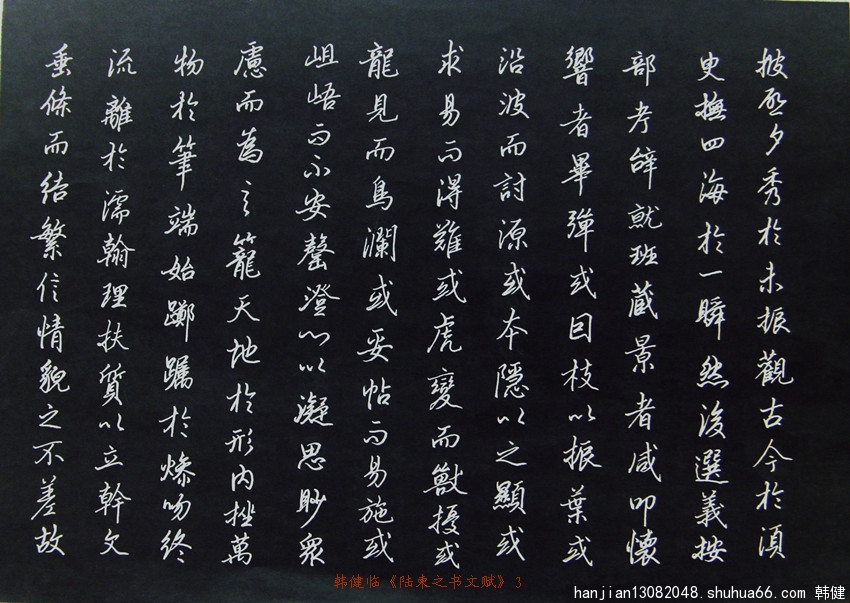 披夕秀於未振觀古今於湏
史撫四海於一瞬然後選義按
部考辭就班蔵景者咸叩懷
響者畢彈或因枝以振葉或
沿波而討源或本隱以之顯或
求易而得難或虎變而獸擾或
龍見而鳥瀾或妥帖而易施或
岨峿而不安罄澄心以凝思眇衆
慮而為言籠天地於形内挫萬
物於筆端始躑躅於燥吻終
流離於濡翰理扶質以立幹文
垂條而結繁信情貌之不差故
韩健临《陆柬之书文赋》3
hanjian13082048.shuhua66.com 韩健